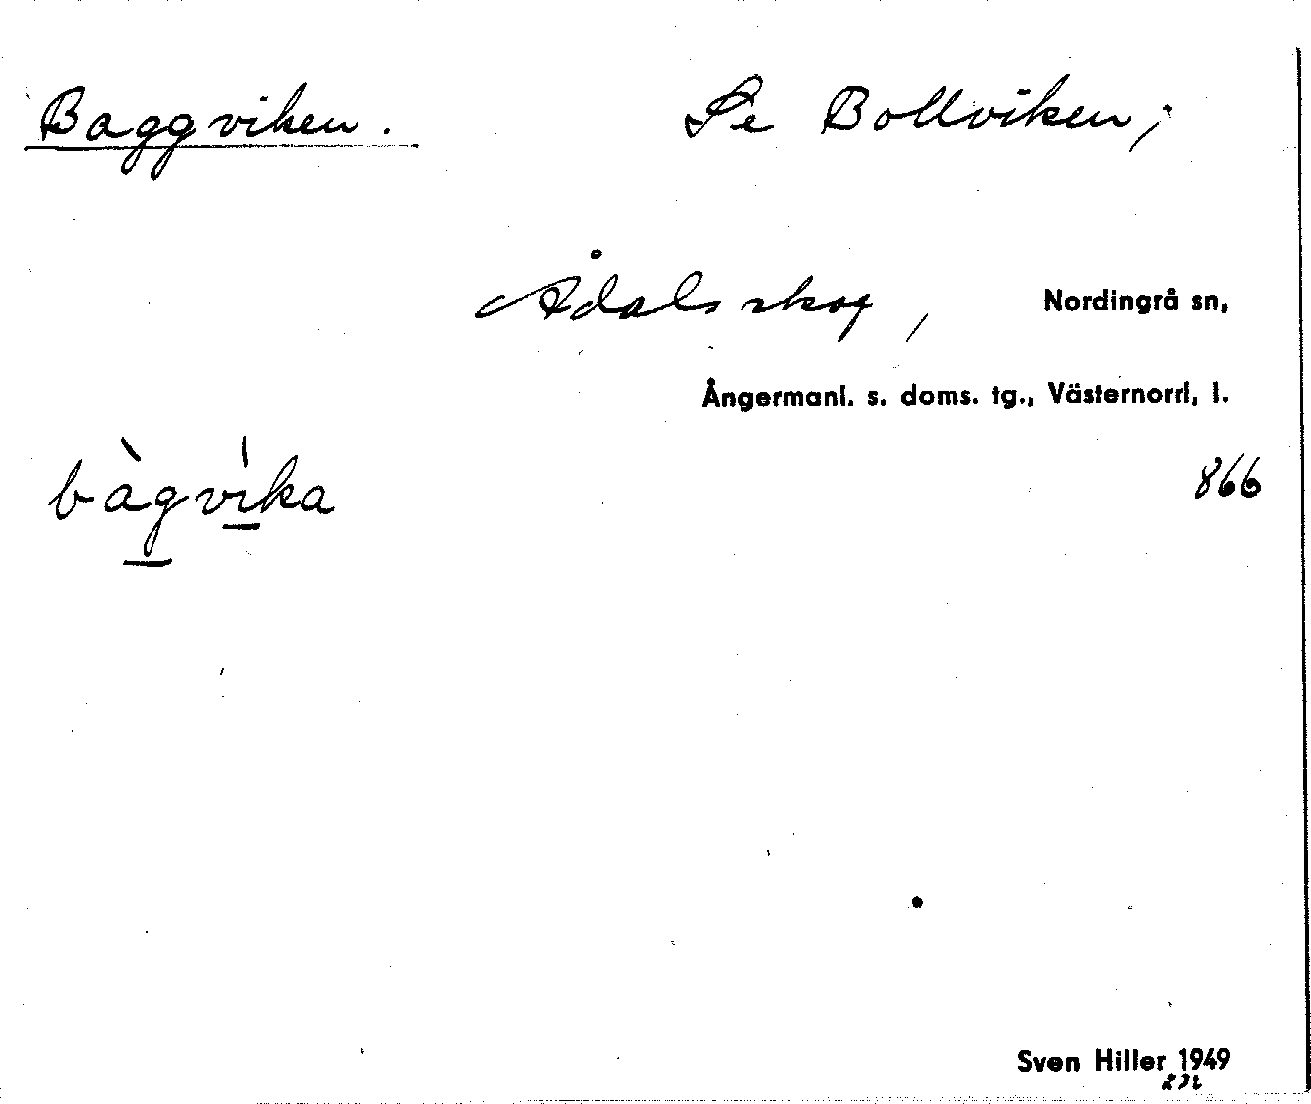 Baggviken. Se Bollviken,
Ådalsskog, Nordingrå sn,
Ångermanl. s. doms. tg., Västernorrl. l.
bàgvìka 866
Sven Hiller 1949